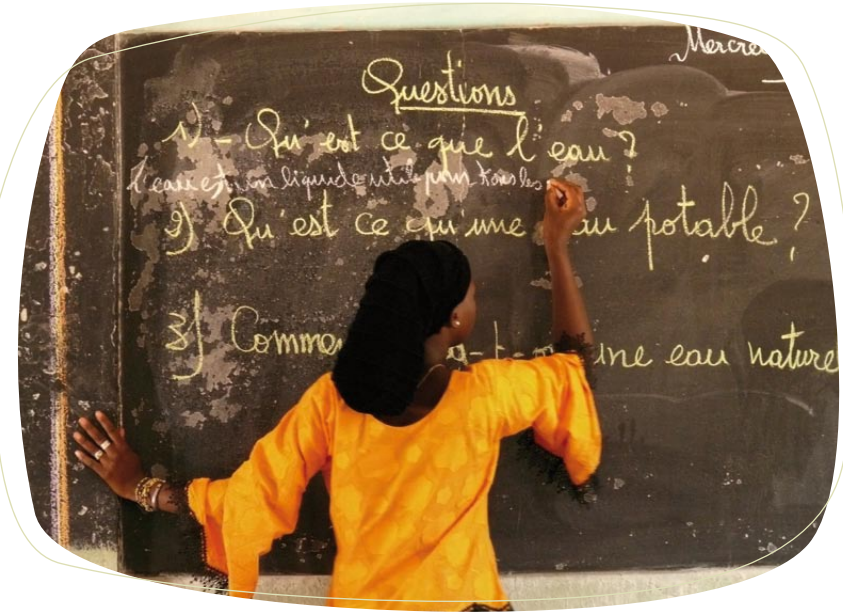 Mercre
Questions
1) - Qu'est ce que l'eau ?
L'eau est un liquide utile pour tous les
2) Qu'est ce qu'une eau potable ?
3) Comme g-t-on une eau nature